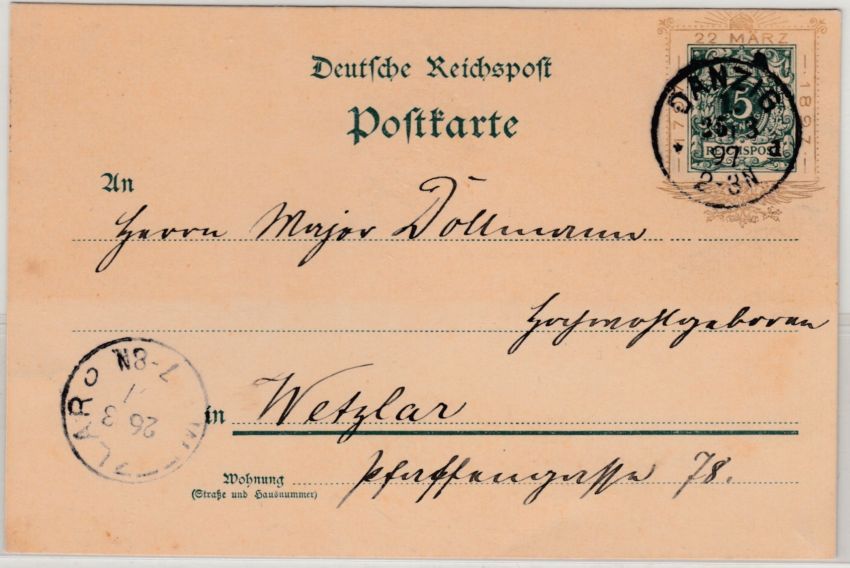 22 MÄRZ
Deutsche Reichspost
Postkarte
1897
5
REICHSPOST
DANZIG
97
2-3N
An
Herrn Major Dollmann
Hochwohlgeboren
7-8N
26 3
in Wetzlar
Wohnung
(Straße und Hausnummer)
Pfaffengasse 78.